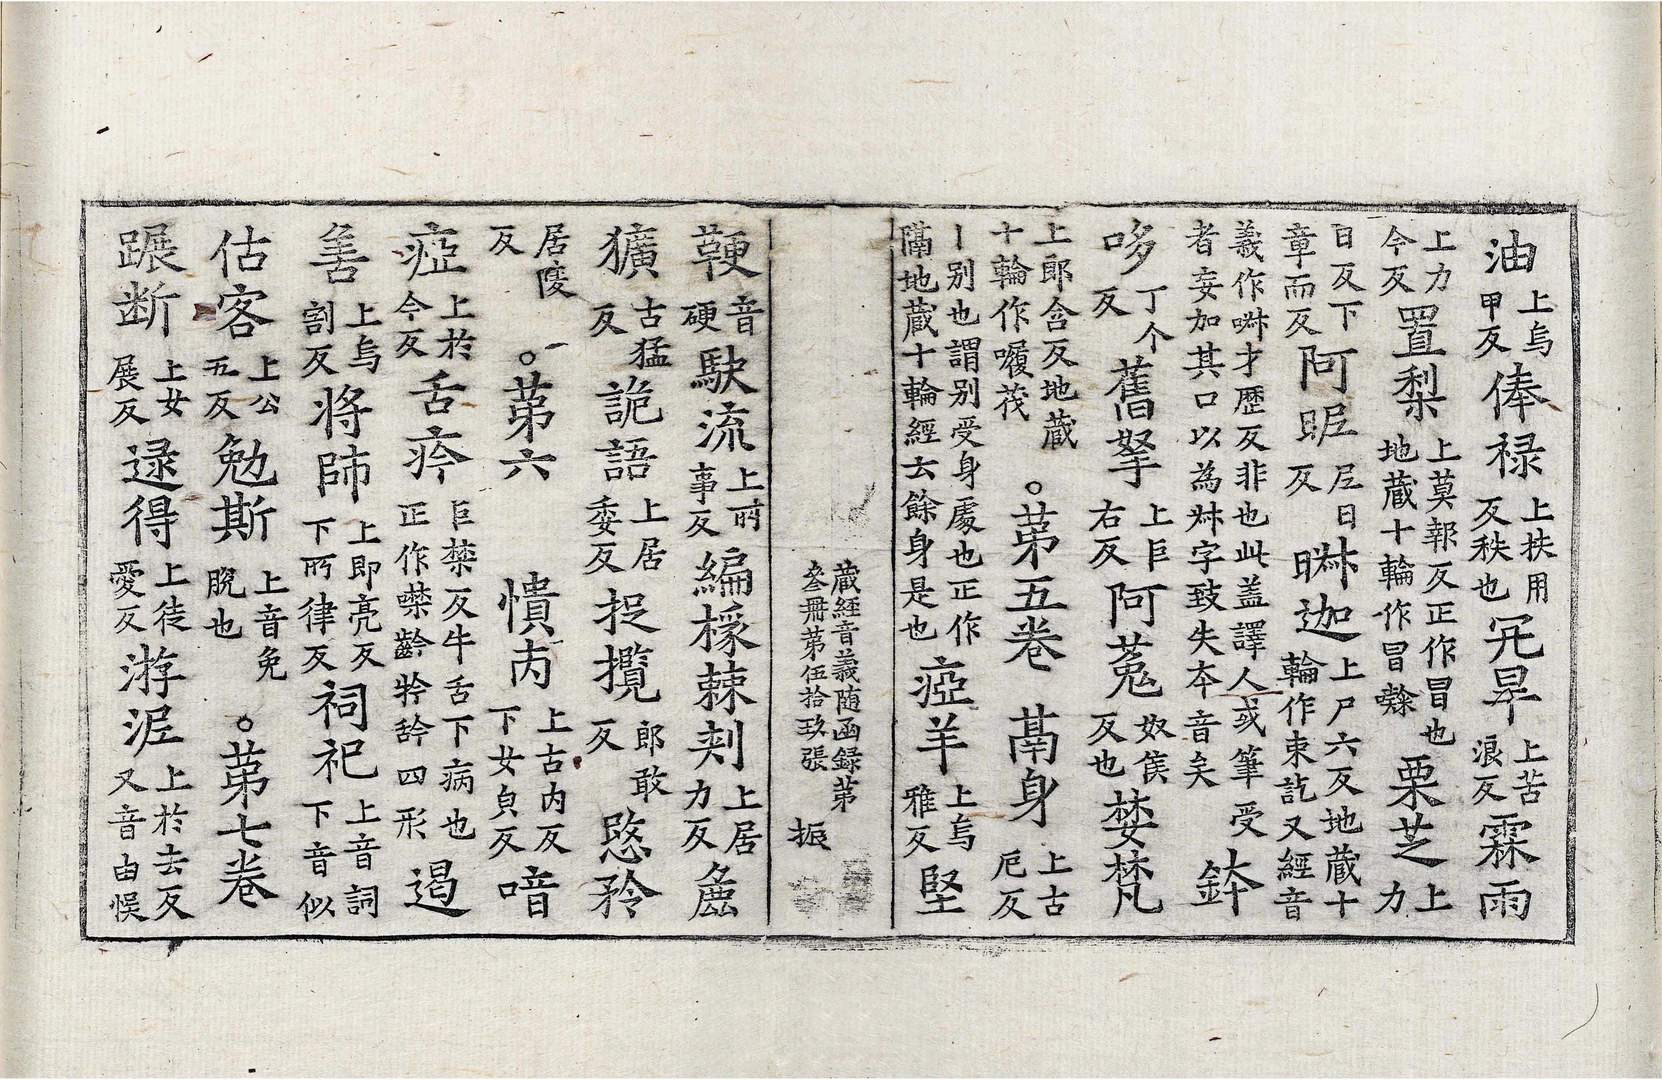 油上烏甲反俸禄上扶用反秩也冘旱上苦浪反霖雨
上力今反罝梨上莫報反正作冒也地蔵十輪作冒𣜩栗芝上力
日反下章而反阿昵尼日反㖿迦上尸六反地蔵十輪作束訖又經音
義作㖿才歷反非也此盖譯人或筆受者妄加其口以為𡭗字致失夲音矣鉢
哆丁个反舊拏上巨右反阿菟奴侯反也婪梵
上郎含反地蔵十輪作囇茷。苐五卷鬲身上古厄反
丨别也謂别受身處也正作隔地蔵十輪經云餘身是也瘂羊上烏雅反堅
蔵経音義随函録苐叄冊苐伍拾玖張振
鞕音硬駃流上所事反編椽棘刾上居力反麁
獷古猛反詭語上居委反捉攬郎敢反愍矜
居陵反。苐六憒丙上古内反下女皃反喑
瘂上於今反舌疥巨禁反牛舌下病也正作噤齡牸䶖四形遏
善上烏割反将師上即亮反下所律反祠祀上音詞下音似
估客上公五反勉斯上音免脫也。苐七卷
蹍断上女展反逯得上徒愛反游泥上於去反又音由悮